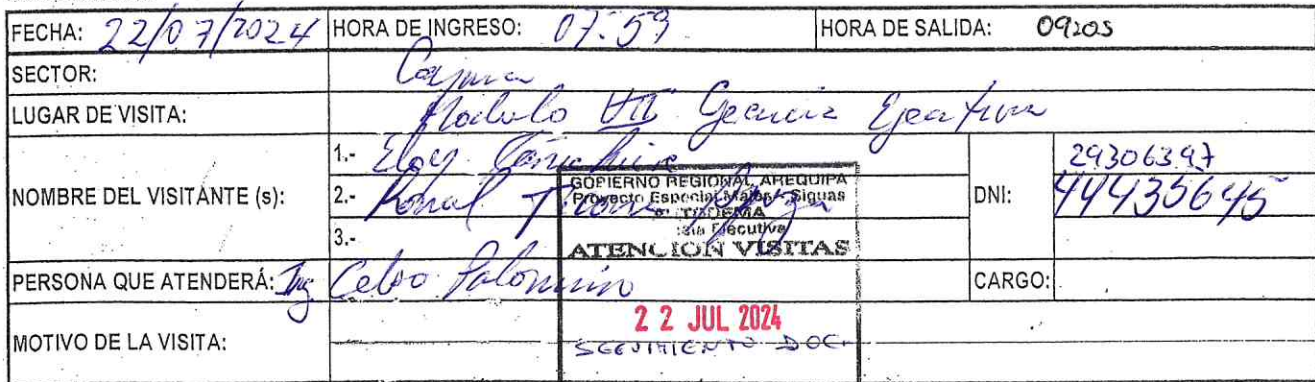 FECHA: 22/07/2024 HORA DE INGRESO: 07:59 HORA DE SALIDA: 09:05
SECTOR: Cayma
LUGAR DE VISITA: Modulo VII Gerencia Ejecutiva
1.- Eloy
NOMBRE DEL VISITANTE (s): 2.- Ronal
3.-
DNI: 29306397
44435645
GOBIERNO REGIONAL AREQUIPA
Proyecto Especial Majes - Siguas
AUTODEMA
Ejecutiva
ATENCION VISITAS
PERSONA QUE ATENDERÁ: Ing Celso Palomino CARGO:
22 JUL 2024
MOTIVO DE LA VISITA: SEGUIMIENTO DOC.